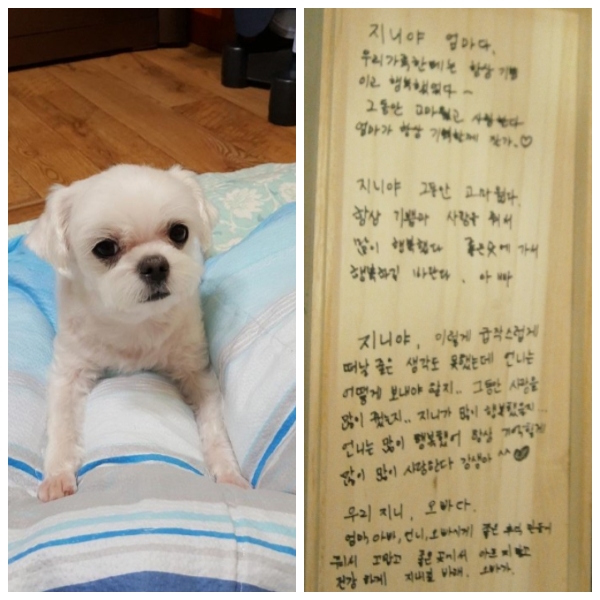 지니야 엄마다,
우리가족한테는 항상 기쁨
이고 행복이였다 ~
그동안 고마웠고 사랑한다
엄마가 항상 기억할께 잘가.♡
지니야 그동안 고마웠다.
항상 기쁨과 사랑을 줘서
많이 행복했다 좋은곳에 가서
행복하길 바란다. 아빠
지니야, 이렇게 갑작스럽게
떠날 줄은 생각도 못했는데 언니는
어떻게 보내야 할지.. 그동안 사랑을
많이 줬는지.. 지니가 많이 행복했을지..
언니는 많이 행복했어 항상 기억할게
많이 많이 사랑한다 강생아 ^^ ♥
우리 지니, 오빠다.
엄마, 아빠, 언니, 오빠에게 좋은 추억 만들어
줘서 고맙고 좋은곳에서 아프지말고
건강하게 지내길 바래. 오빠가.